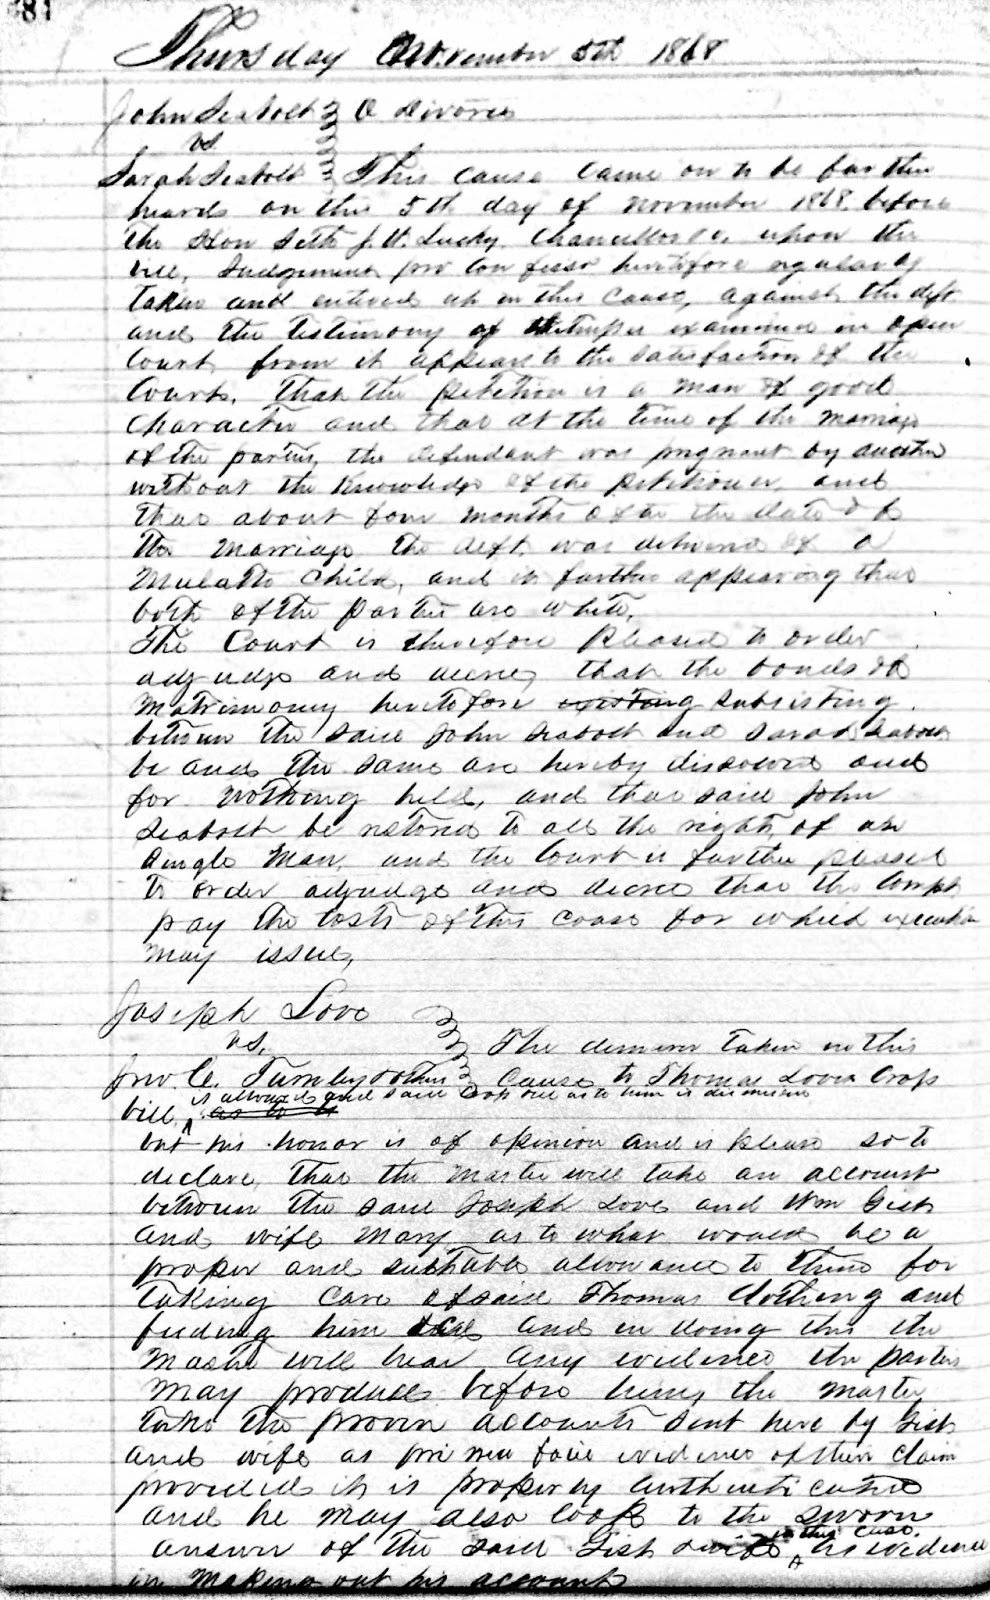 81
Thursday November 5th 1868
John Seabolt } O Divorce
vs.
Sarah Seabolt } This cause came on to be farther
heard on this 5th day of November 1868. before
the Hon Seth J. W. Lucky Chancellor &c, upon the
bill, Judgement pro con fesso heretofore regularly
taken and entered up in this cause, against the deft
and the testimony of examined in open
Court from it appears to the satisfaction of the
Court, that the petition is a man of good
character and that at the time of the marriage
of the parties, the defendant was pregnant by another
without the knowledge of the petitioner, and
that about four months after the date of
the marriage the deft. was delivered of a
Mulatto child, and it farther appearing that
both of the parties are white,
The Court is therefore pleased to order
adjudge and decree, that the bonds of
Matrimony heretofore existing subsisting
between the said John Seabolt and Sarah Seabolt
be and the same are hereby dissolved and
for nothing held, and that said John
Seabolt be restored to all the rights of a
single man, and the Court is further pleased
to order adjudge and decree that the Compt
pay the costs of this cause for which execution
may issue,
Joseph Love
vs.
The demurer taken in this
Jno. C. Turnley & others } cause to Thomas Loves Cross
is allowed and said Cross bill as to him is dismissed
bill, as to
but his honor is of opinion and is please so to
declare, that the Master will take an account
between the said Joseph Love and Wm Gish
and wife Mary as to what would be a
proper and suitable allowance to them for
taking care of said Thomas Clothing and
feeding him &c and in doing this the
Master will hear any evidence the parties
may produce before him, the master
take the proven accounts sent here by Gish
and wife as prima facie evidence of their claim
provided it is properly authenticated
and he may also look to the sworn
in this case.
answer of the said Gish & wife as evidence
in making out his account